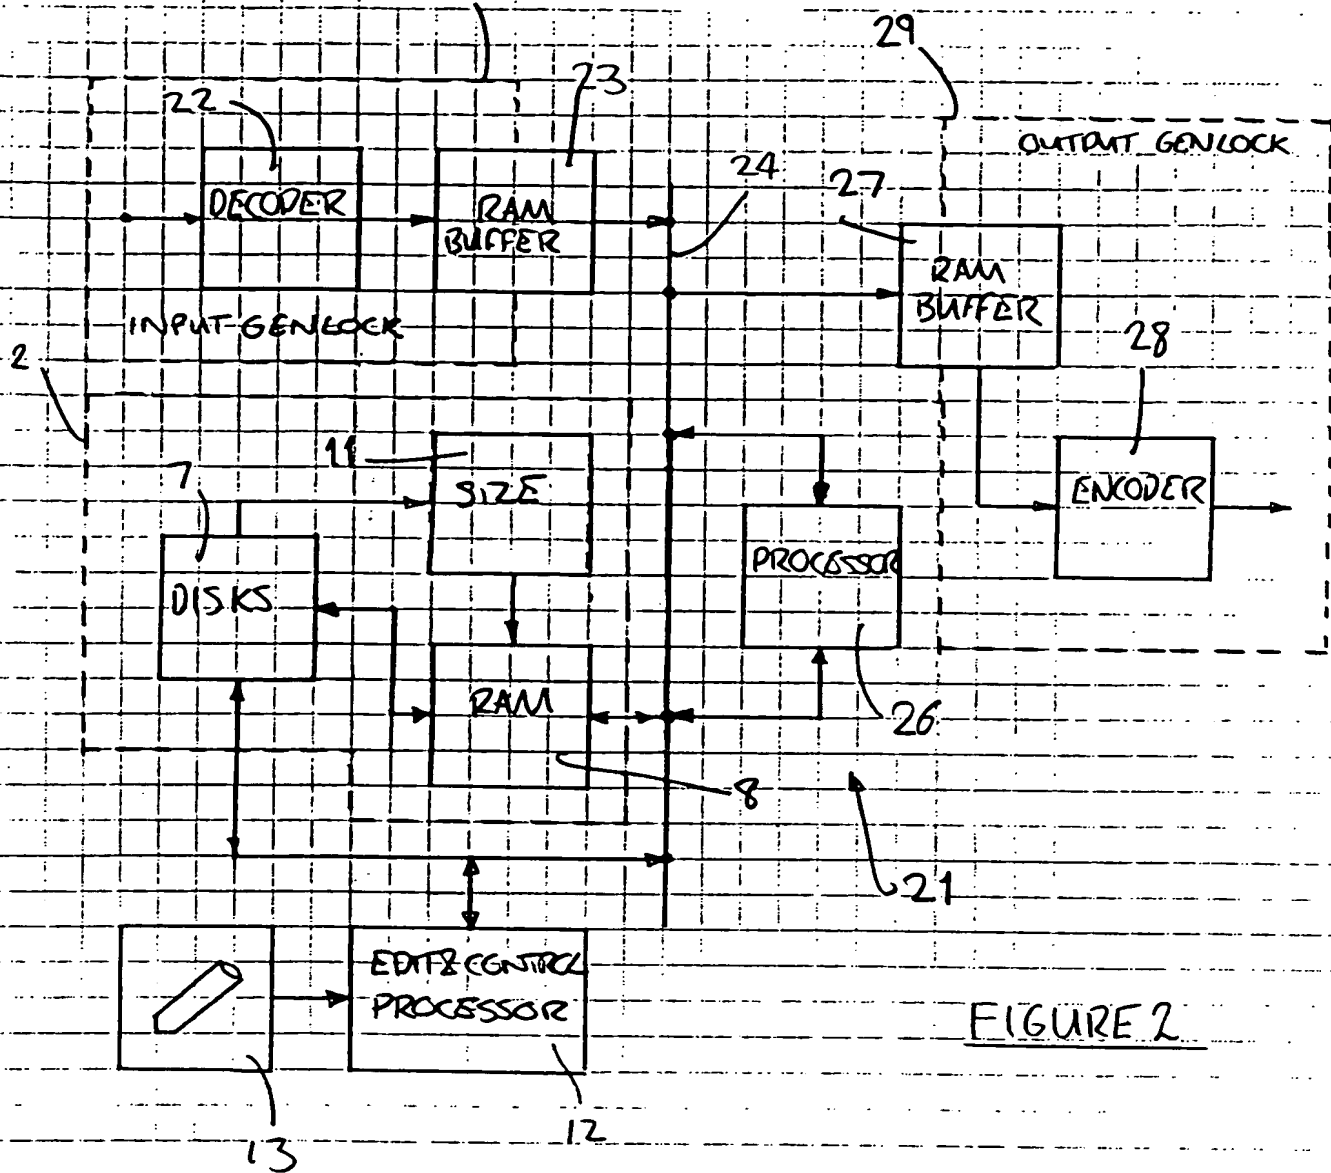 29
23
22
OUTPUT GENLOCK
24
27
DECODER
RAM
BUFFER
RAM
BUFFER
INPUT GENLOCK
28
2
11
7
SIZE
ENCODER
PROCESSOR
DISKS
RAM
26
8
21
EDIT & CONTROL
PROCESSOR
FIGURE 2
12
13